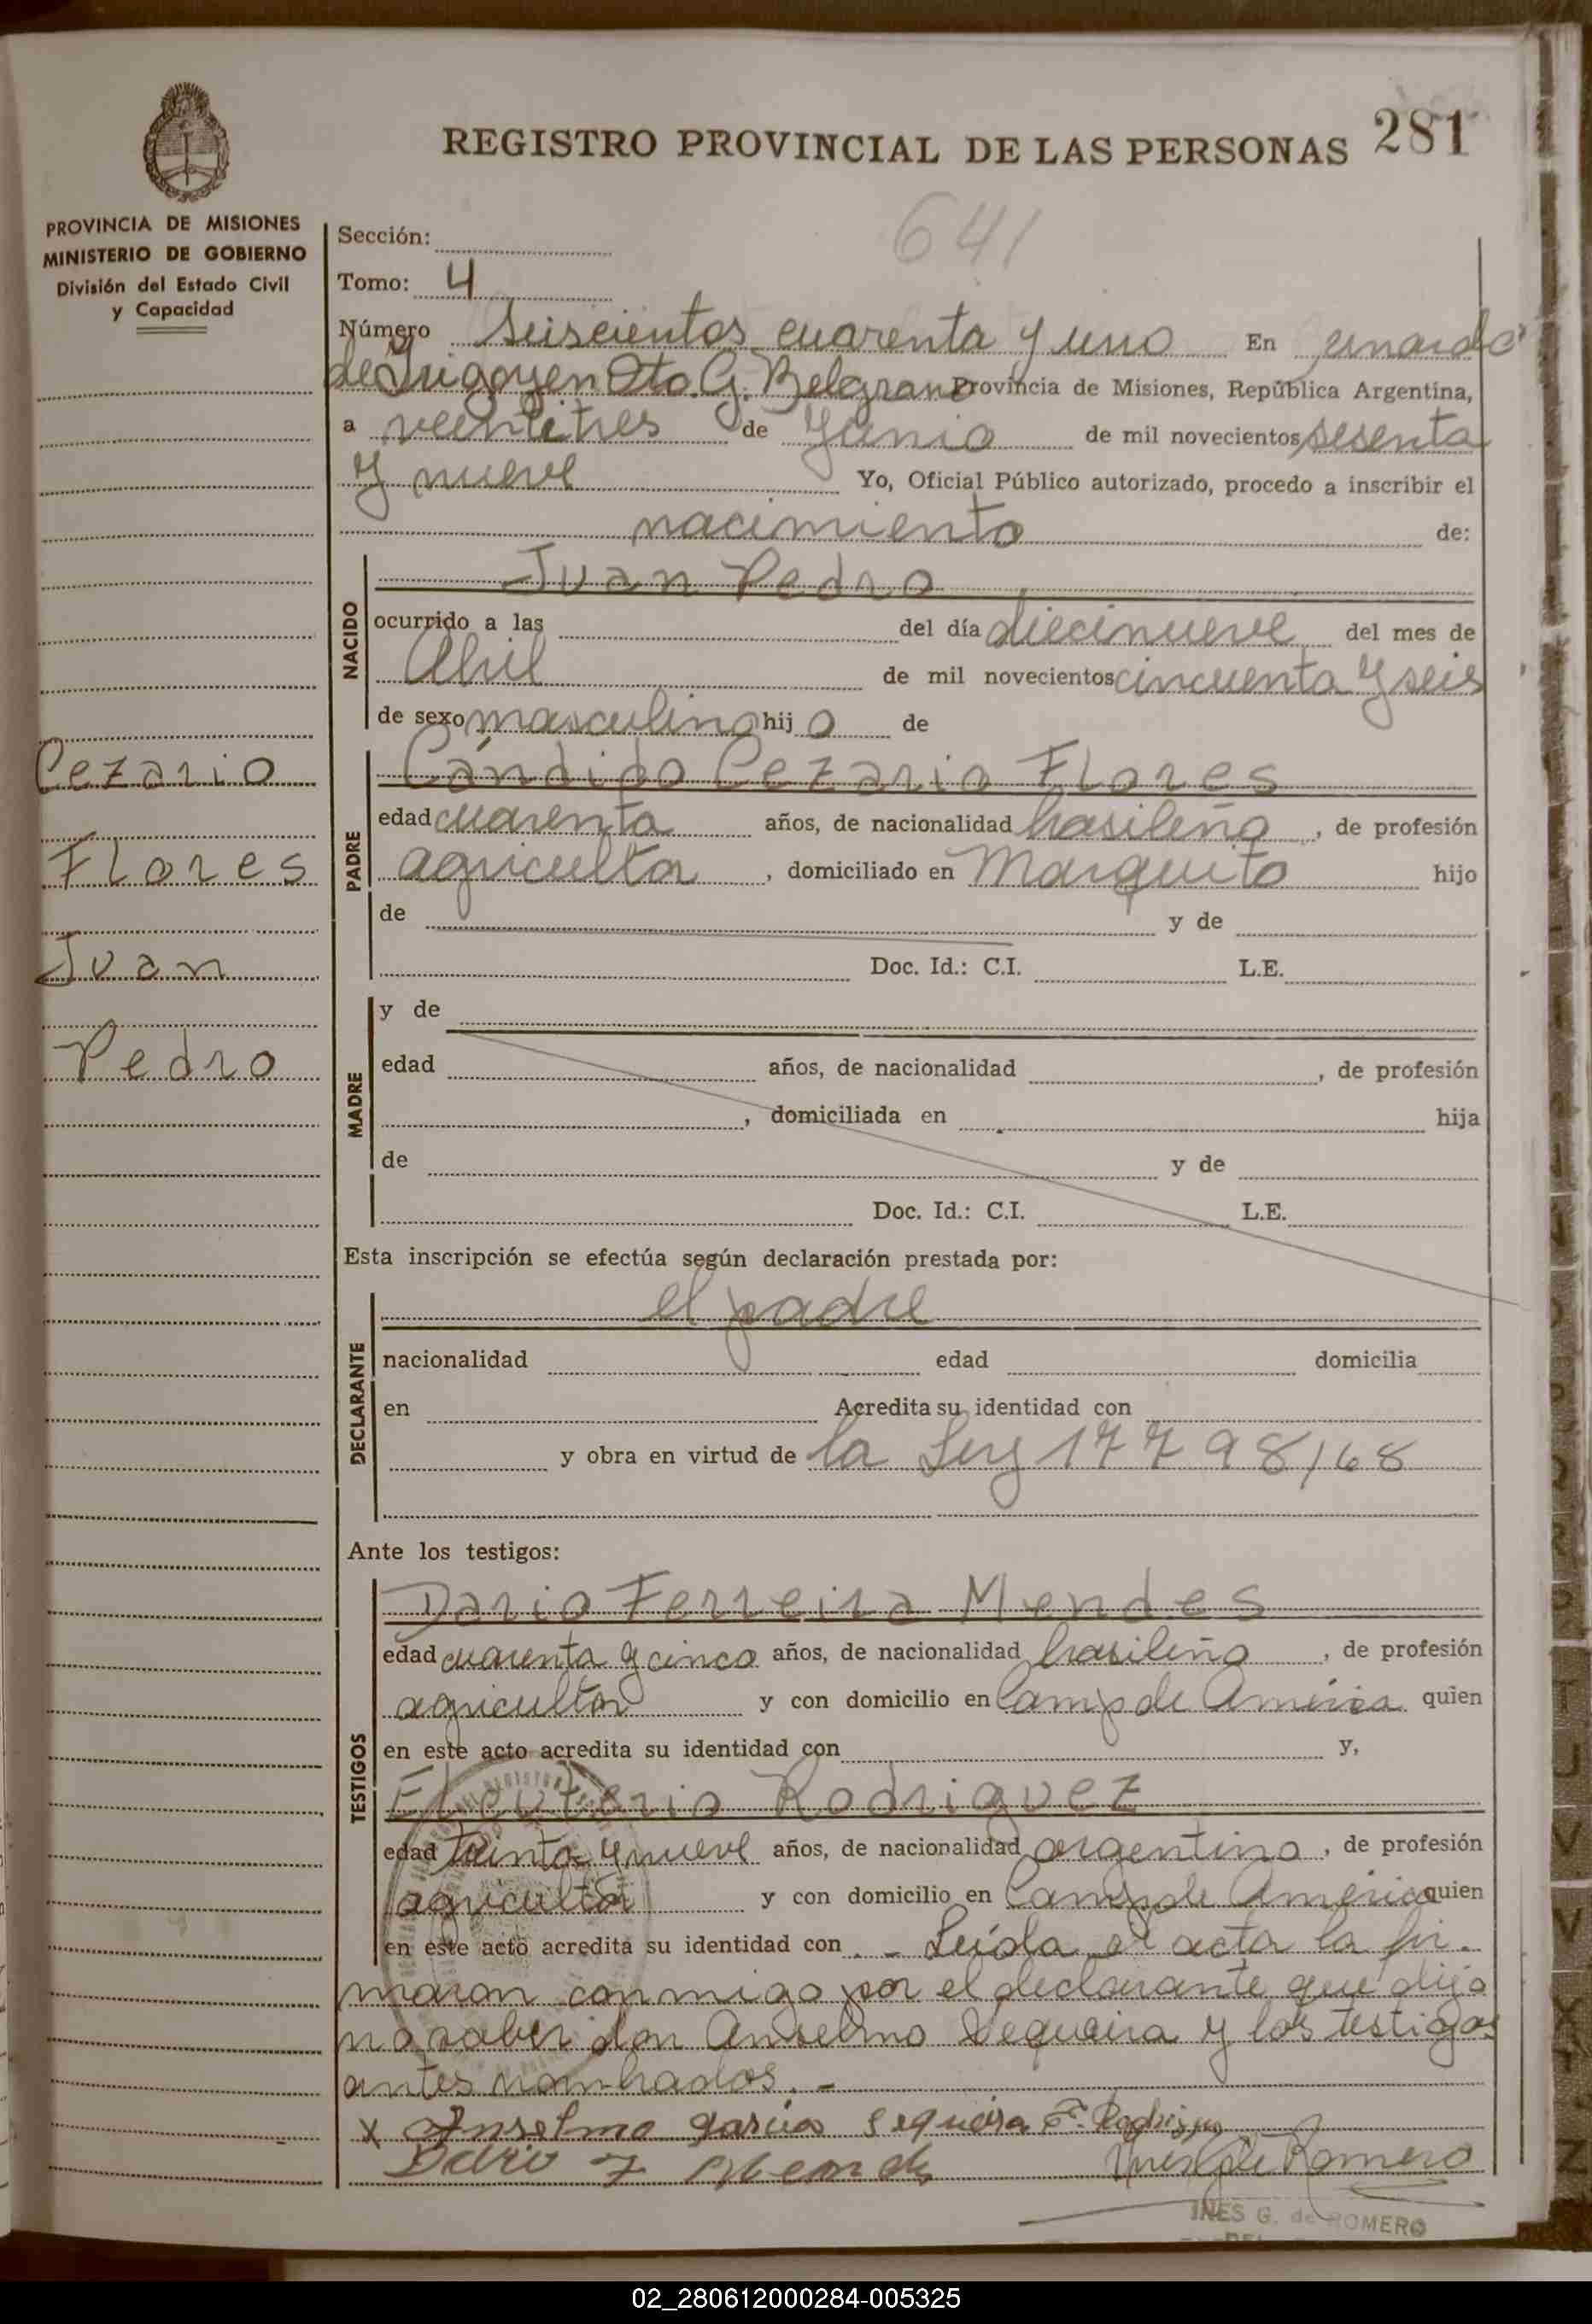 REGISTRO PROVINCIAL DE LAS PERSONAS 281
PROVINCIA DE MISIONES
MINISTERIO DE GOBIERNO
División del Estado Civil
y Capacidad
641
Sección:
Tomo: 4
Número Seiscientos cuarenta y uno En
de Irigoyen Dto. G. Belgrano Provincia de Misiones, República Argentina,
a veintitres de Junio de mil novecientos sesenta
y nueve Yo, Oficial Público autorizado, procedo a inscribir el
nacimiento de:
NACIDO
Juan Pedro
ocurrido a las del día diecinueve del mes de
Abril de mil novecientos cincuenta y seis
de sexo masculino hijo de
Cezario
Flores
Juan
Pedro
PADRE
Cándido Cezario Flores
edad cuarenta años, de nacionalidad brasileña, de profesión
agricultor, domiciliado en Marquito hijo
de y de
Doc. Id.: C.I. L.E.
MADRE
y de
edad años, de nacionalidad , de profesión
, domiciliada en hija
de y de
Doc. Id.: C.I. L.E.
Esta inscripción se efectúa según declaración prestada por:
DECLARANTE
el padre
nacionalidad edad domicilia
en Acredita su identidad con
y obra en virtud de la Ley 17798/68
Ante los testigos:
TESTIGOS
Dario Ferreira Mendes
edad cuarenta y cinco años, de nacionalidad brasileña, de profesión
agricultor y con domicilio en Camp de América quien
en este acto acredita su identidad con y,
Eleuterio Rodriguez
edad treinta y nueve años, de nacionalidad argentina, de profesión
agricultor y con domicilio en Camp de América quien
en este acto acredita su identidad con . - Leída el acta la fir-
maron conmigo por el declarante que dijo
no saber don Anselmo Sequeira y los testigos
antes nombrados. -
x Anselmo garcia Sequeira E. Rodriguez
Dario F Mendes Ines G de Romero
INES G. de ROMERO
02_280612000284-005325